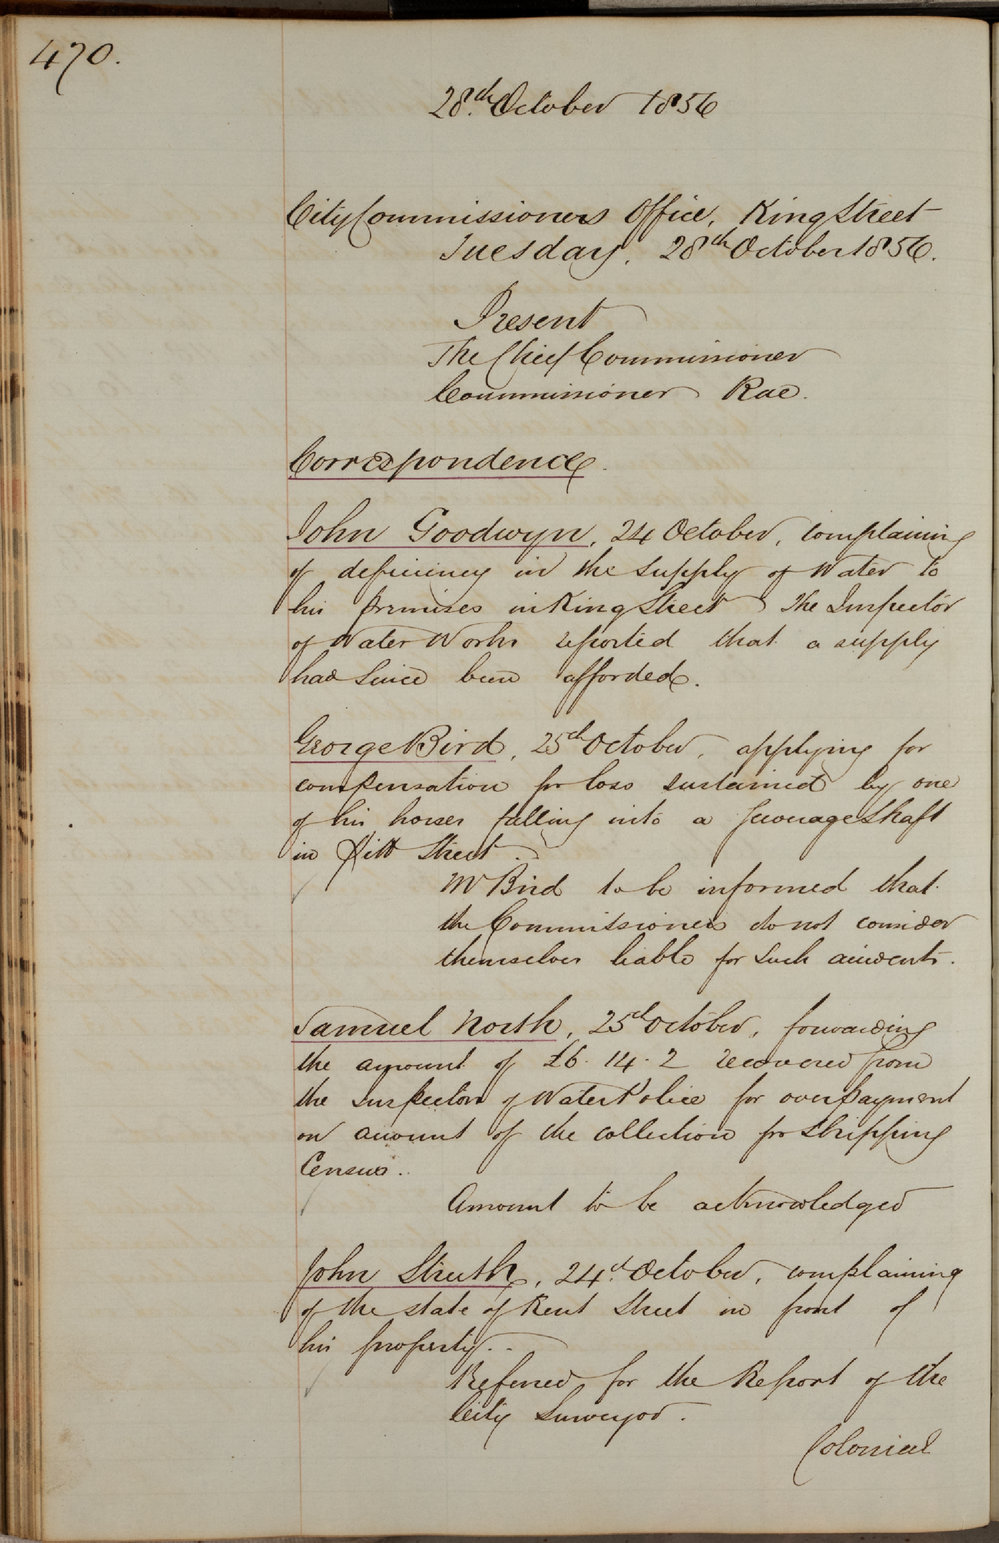 470.
28th. October 1856
City Commissioners Office, King Street
Tuesday, 28th October 1856.
Present
The Chief Commissioner
Commissioner Rae.
Correspondence.
John Goodwyn, 24 October, complaining
of deficiency in the supply of Water to
his premises in King Street. The Inspector
of Water Works reported that a supply
had since been afforded.
George Bird, 25th October, applying for
compensation for loss sustained by one
of his horses falling into a Sewerage Shaft
in Pitt Street.
Mr Bird to be informed that
the Commissioners do not consider
themselves liable for such accidents.
Samuel North, 25th October, forwarding
the amount of £6.14.2 recovered from
the Inspector of Water Police for overpayment
on account of the collection for Shipping
Census.
Amount to be acknowledged
John Struth, 24th. October, complaining
of the state of Kent Street in front of
his property..
Referred for the Report of the
City Surveyor.
Colonial